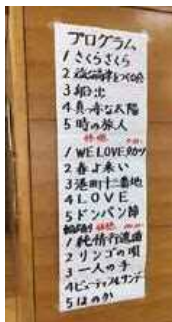 プログラム
1 さくらさくら
2
3 船出
4 真っ赤な太陽
5 時の旅人
休憩
1 WE LOVE
2 春よ来い
3 港町十三番地
4 LOVE
5 ドンパン節
休憩
1 純情行進曲
2 リンゴの唄
3 一人の手
4 ビューティフルサンデー
5 ほのか